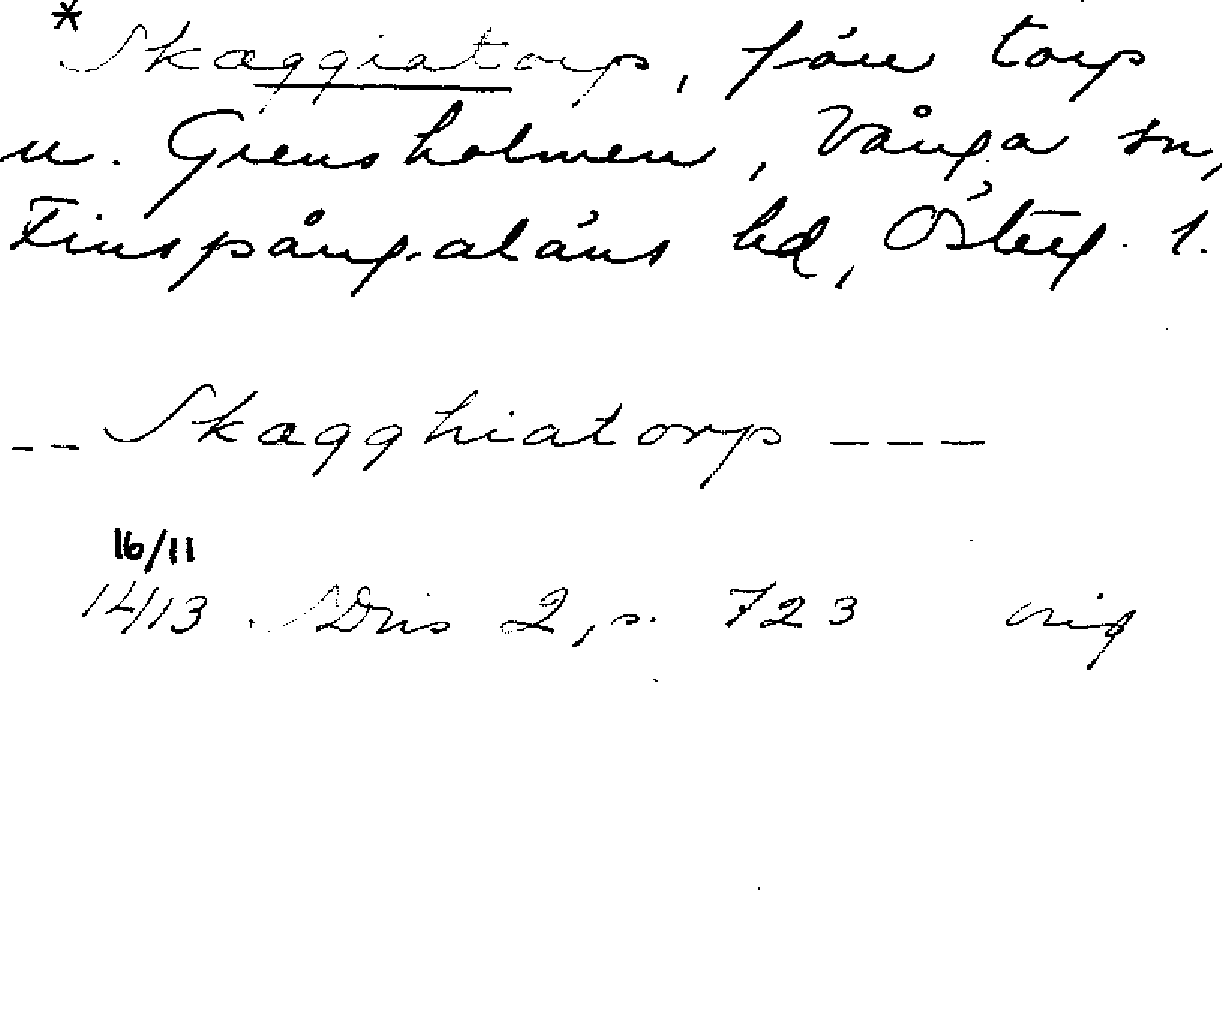 *Skæggiatorp, förr torp
u. Grensholmen, Vånga sn,
Finspångaläns hd, Österg. l.
-- Skægghiatorp ---
16/11
1413 SDns 2, s. 723 orig